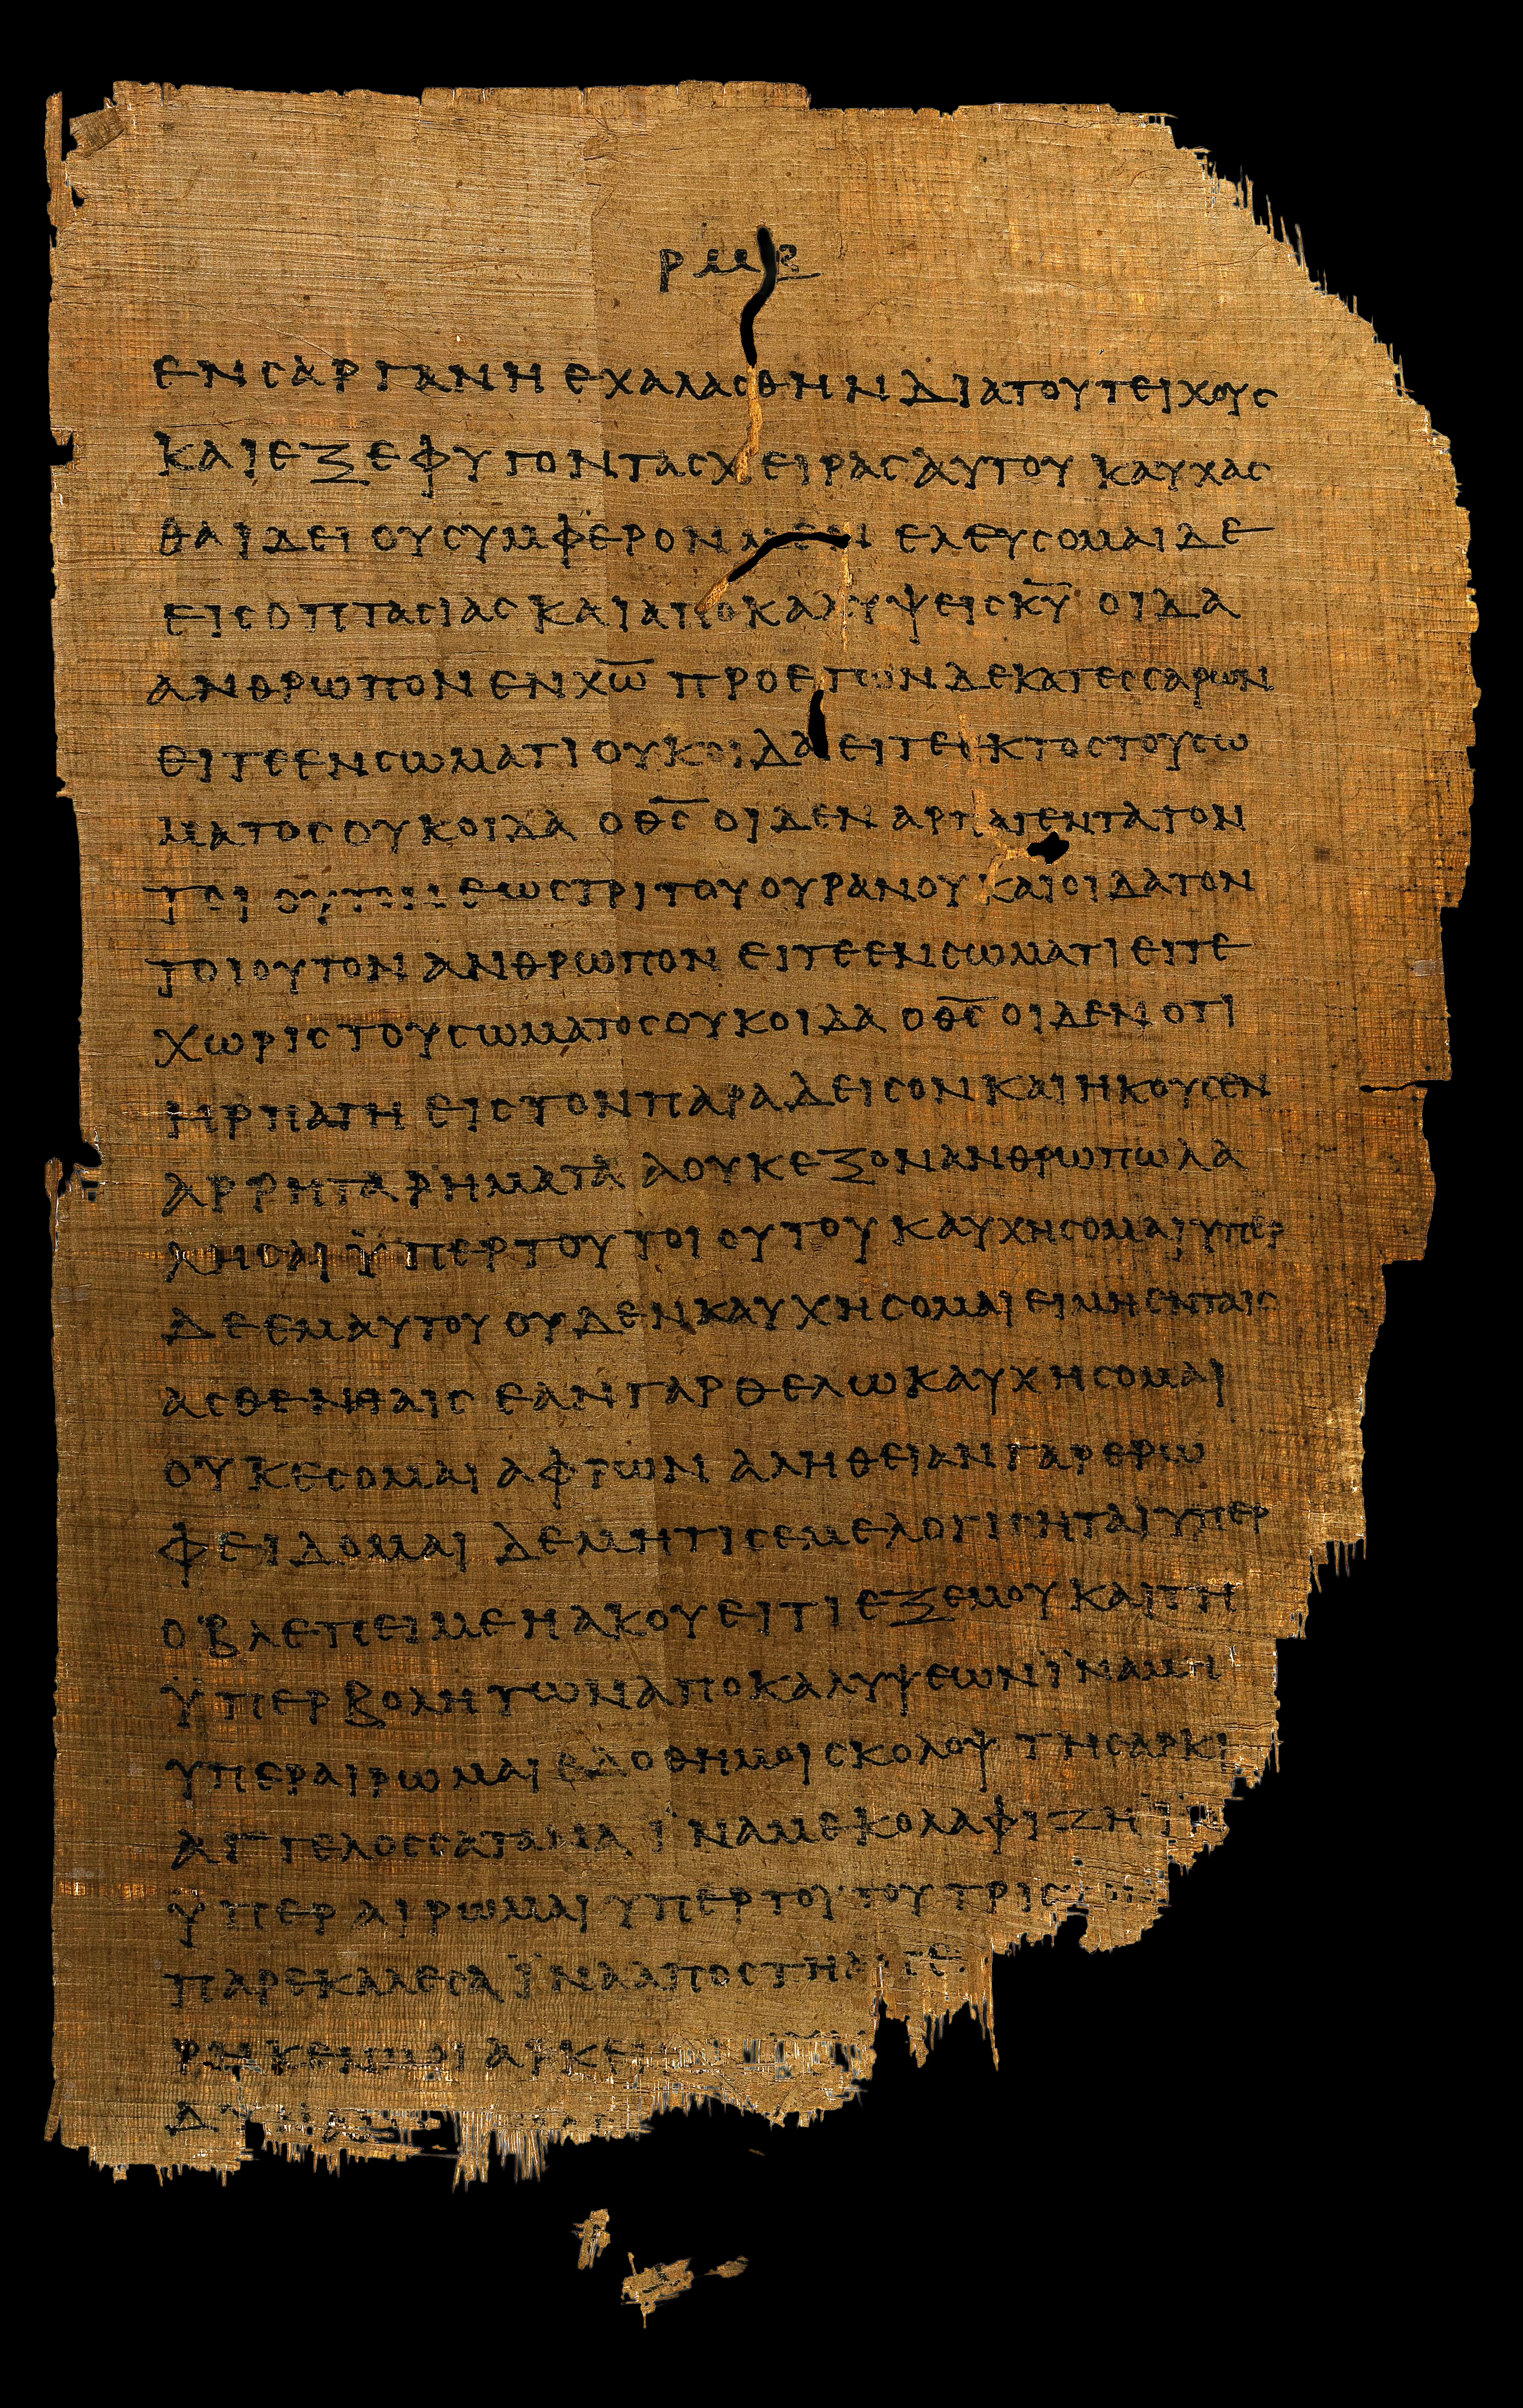 ρμβ
ενσαργανηεχαλασθηνδιατουτειχους
καιεξεφυγοντασχειρασαυτου καυχασ
θαιδει ουσυμφερονμεν ελευσομαιδε
εισοπτασιασκαιαποκαλυψεισκ̅υ̅ οιδα
ανθρωπονενχ̅ω̅ προετωνδεκατεσσαρων
ειτεενσωματιουκοιδαειτεεκτοστουσω
ματοσουκοιδα οθ̅σ̅ οιδεν αρπαγεντατον
τοιουτον εωστριτουουρανουκαιοιδατον
τοιουτονανθρωπον ειτεενσωματιειτε
χωριστουσωματοσουκοιδα οθ̅σ̅ οιδενοτι
ηρπαγη ειστονπαραδεισονκαιηκουσεν
αρρηταρηματα αουκεξονανθρωπωλα
λησαι ϋπερτουτοιουτου καυχησομαιυπερ
δεεμαυτουουδενκαυχησομαι ειμηενταισ
ασθενηαισ εανγαρθελωκαυχησομαι
ουκεσομαι αφρων αληθειανγαρερω
φειδομαι δεμητισεμελογισηταιυπερ
οβλεπειμεηακουειτι εξεμου καιτη
ϋπερβολητωναποκαλυψεωνϊναμη
υπεραιρωμαι εδοθημοισκολοψ τησαρκι
αγγελοσσατανα ϊναμεκολαφιζηϊν
ϋπεραιρωμαι υπερτουτουτρισ
παρεκαλεσα ϊνααποστη
ρηκενμοι αρκει
δυναμ